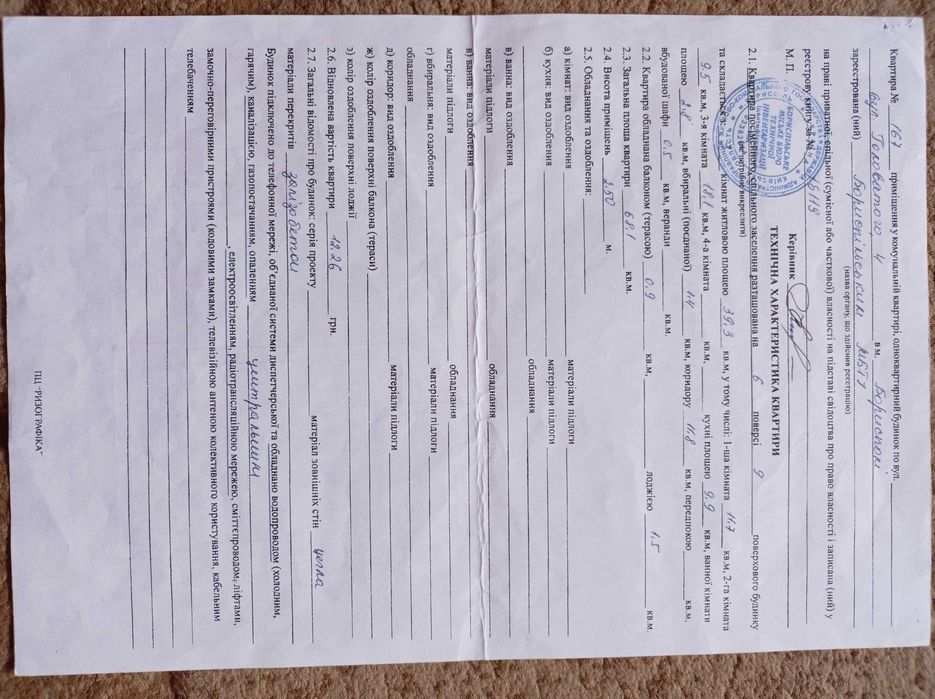 Квартира № 167 приміщення у комунальній квартирі, одноквартирний будинок по вул.
вул. Головатого 4 в м. Борисполі
зареєстрована (ний) Бориспільським МБТІ
(назва органу, що здійснив реєстрацію)
на праві приватної, спільної (сумісної або часткової) власності на підставі свідоцтва про право власності і записана (ний) у
реєстрову книгу за № 5119
М. П. Керівник
ТЕХНІЧНА ХАРАКТЕРИСТИКА КВАРТИРИ
2.1. Квартира посімейного, спільного заселення розташована на 6 поверсі 9 поверхового будинку
(непотрібне викреслити)
та складається з: кімнат житловою площею 39,3 кв.м, у тому числі: 1-ша кімната 11,7 кв.м, 2-га кімната
9,5 кв.м, 3-я кімната 18,1 кв.м, 4-а кімната кв.м, кухні площею 9,9 кв.м, ванної кімнати
площею 2,8 кв.м, вбиральні (поєднаної) 1,4 кв.м, коридору 11,8 кв.м, передпокою кв.м,
вбудованої шафи 0,5 кв.м, веранди кв.м.
2.2. Квартира обладнана балконом (терасою) 0,9 кв.м, лоджією 1,5 кв.м.
2.3. Загальна площа квартири 68,1 кв.м.
2.4. Висота приміщень 2,50 м.
2.5. Обладнання та оздоблення:
а) кімнат: вид оздоблення матеріали підлоги
б) кухня: вид оздоблення матеріали підлоги
обладнання
в) ванна: вид оздоблення
матеріали підлоги обладнання
в) ванна: вид оздоблення
матеріали підлоги обладнання
г) вбиральня: вид оздоблення матеріали підлоги
обладнання
д) коридор: вид оздоблення матеріали підлоги
ж) колір оздоблення поверхні балкона (тераси)
з) колір оздоблення поверхні лоджії
2.6. Відновлена вартість квартири 12,26 грн.
2.7. Загальні відомості про будинок: серія проекту матеріал зовнішніх стін цегла
матеріали перекриттів залізобетон
Будинок підключено до телефонної мережі, об'єднаної системи диспетчерської та обладнано водопроводом (холодним,
гарячим), каналізацією, газопостачанням, опаленням центральним
електроосвітленням, радіотрансляційною мережею, сміттєпроводом, ліфтами,
замочно-переговірними пристроями (кодовими замками), телевізійною антеною колективного користування, кабельним
телебаченням
ПЦ "РИЗОГРАФІКА"